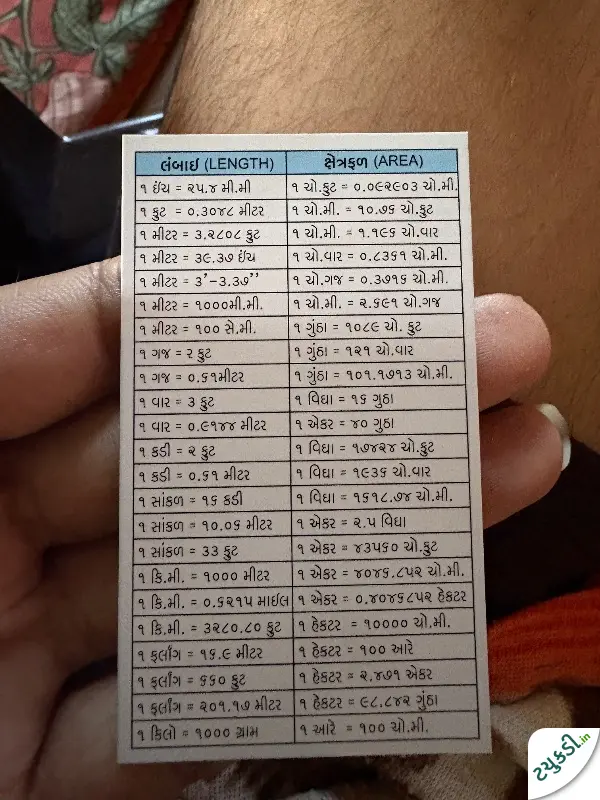 લંબાઇ (LENGTH) ક્ષેત્રફળ (AREA)
૧ ઈંચ = ૨૫.૪ મી.મી ૧ ચો.ફુટ = ૦.૦૯૨૯૦૩ ચો.મી.
૧ ફુટ = ૦.૩૦૪૮ મીટર ૧ ચો.મી. = ૧૦.૭૬ ચો.ફુટ
૧ મીટર = ૩.૨૮૦૮ ફુટ ૧ ચો.મી. = ૧.૧૯૬ ચો.વાર
૧ મીટર = ૩૯.૩૭ ઈંચ ૧ ચો.વાર = ૦.૮૩૬૧ ચો.મી.
૧ મીટર = ૩’-૩.૩૭’’ ૧ ચો.ગજ = ૦.૩૭૧૬ ચો.મી.
૧ મીટર = ૧૦૦૦મી.મી. ૧ ચો.મી. = ૨.૬૯૧ ચો.ગજ
૧ મીટર = ૧૦૦ સે.મી. ૧ ગુંઠા = ૧૦૮૯ ચો. ફુટ
૧ ગજ = ૨ ફુટ ૧ ગુંઠા = ૧૨૧ ચો.વાર
૧ ગજ = ૦.૬૧મીટર ૧ ગુંઠા = ૧૦૧.૧૭૧૩ ચો.મી.
૧ વાર = ૩ ફુટ ૧ વિઘા = ૧૬ ગુંઠા
૧ વાર = ૦.૯૧૪૪ મીટર ૧ એકર = ૪૦ ગુંઠા
૧ કડી = ૨ ફુટ ૧ વિઘા = ૧૭૪૨૪ ચો.ફુટ
૧ કડી = ૦.૬૧ મીટર ૧ વિઘા = ૧૯૩૬ ચો.વાર
૧ સાંકળ = ૧૬ કડી ૧ વિઘા = ૧૬૧૮.૭૪ ચો.મી.
૧ સાંકળ = ૧૦.૦૬ મીટર ૧ એકર = ૨.૫ વિઘા
૧ સાંકળ = ૩૩ ફુટ ૧ એકર = ૪૩૫૬૦ ચો.ફુટ
૧ કિ.મી. = ૧૦૦૦ મીટર ૧ એકર = ૪૦૪૬.૮૫૨ ચો.મી.
૧ કિ.મી. = ૦.૬૨૧૫ માઈલ ૧ એકર = ૦.૪૦૪૬૮૫૨ હેકટર
૧ કિ.મી. = ૩૨૮૦.૮૦ ફુટ ૧ હેકટર = ૧૦૦૦૦ ચો.મી.
૧ ફર્લાંગ = ૧૬.૯ મીટર ૧ હેકટર = ૧૦૦ આરે
૧ ફર્લાંગ = ૬૬૦ ફુટ ૧ હેકટર = ૨.૪૭૧ એકર
૧ ફર્લાંગ = ૨૦૧.૧૭ મીટર ૧ હેકટર = ૯૮.૮૪૨ ગુંઠા
૧ કિલો = ૧૦૦૦ ગ્રામ ૧ આરે = ૧૦૦ ચો.મી.
ટચુકડી.in